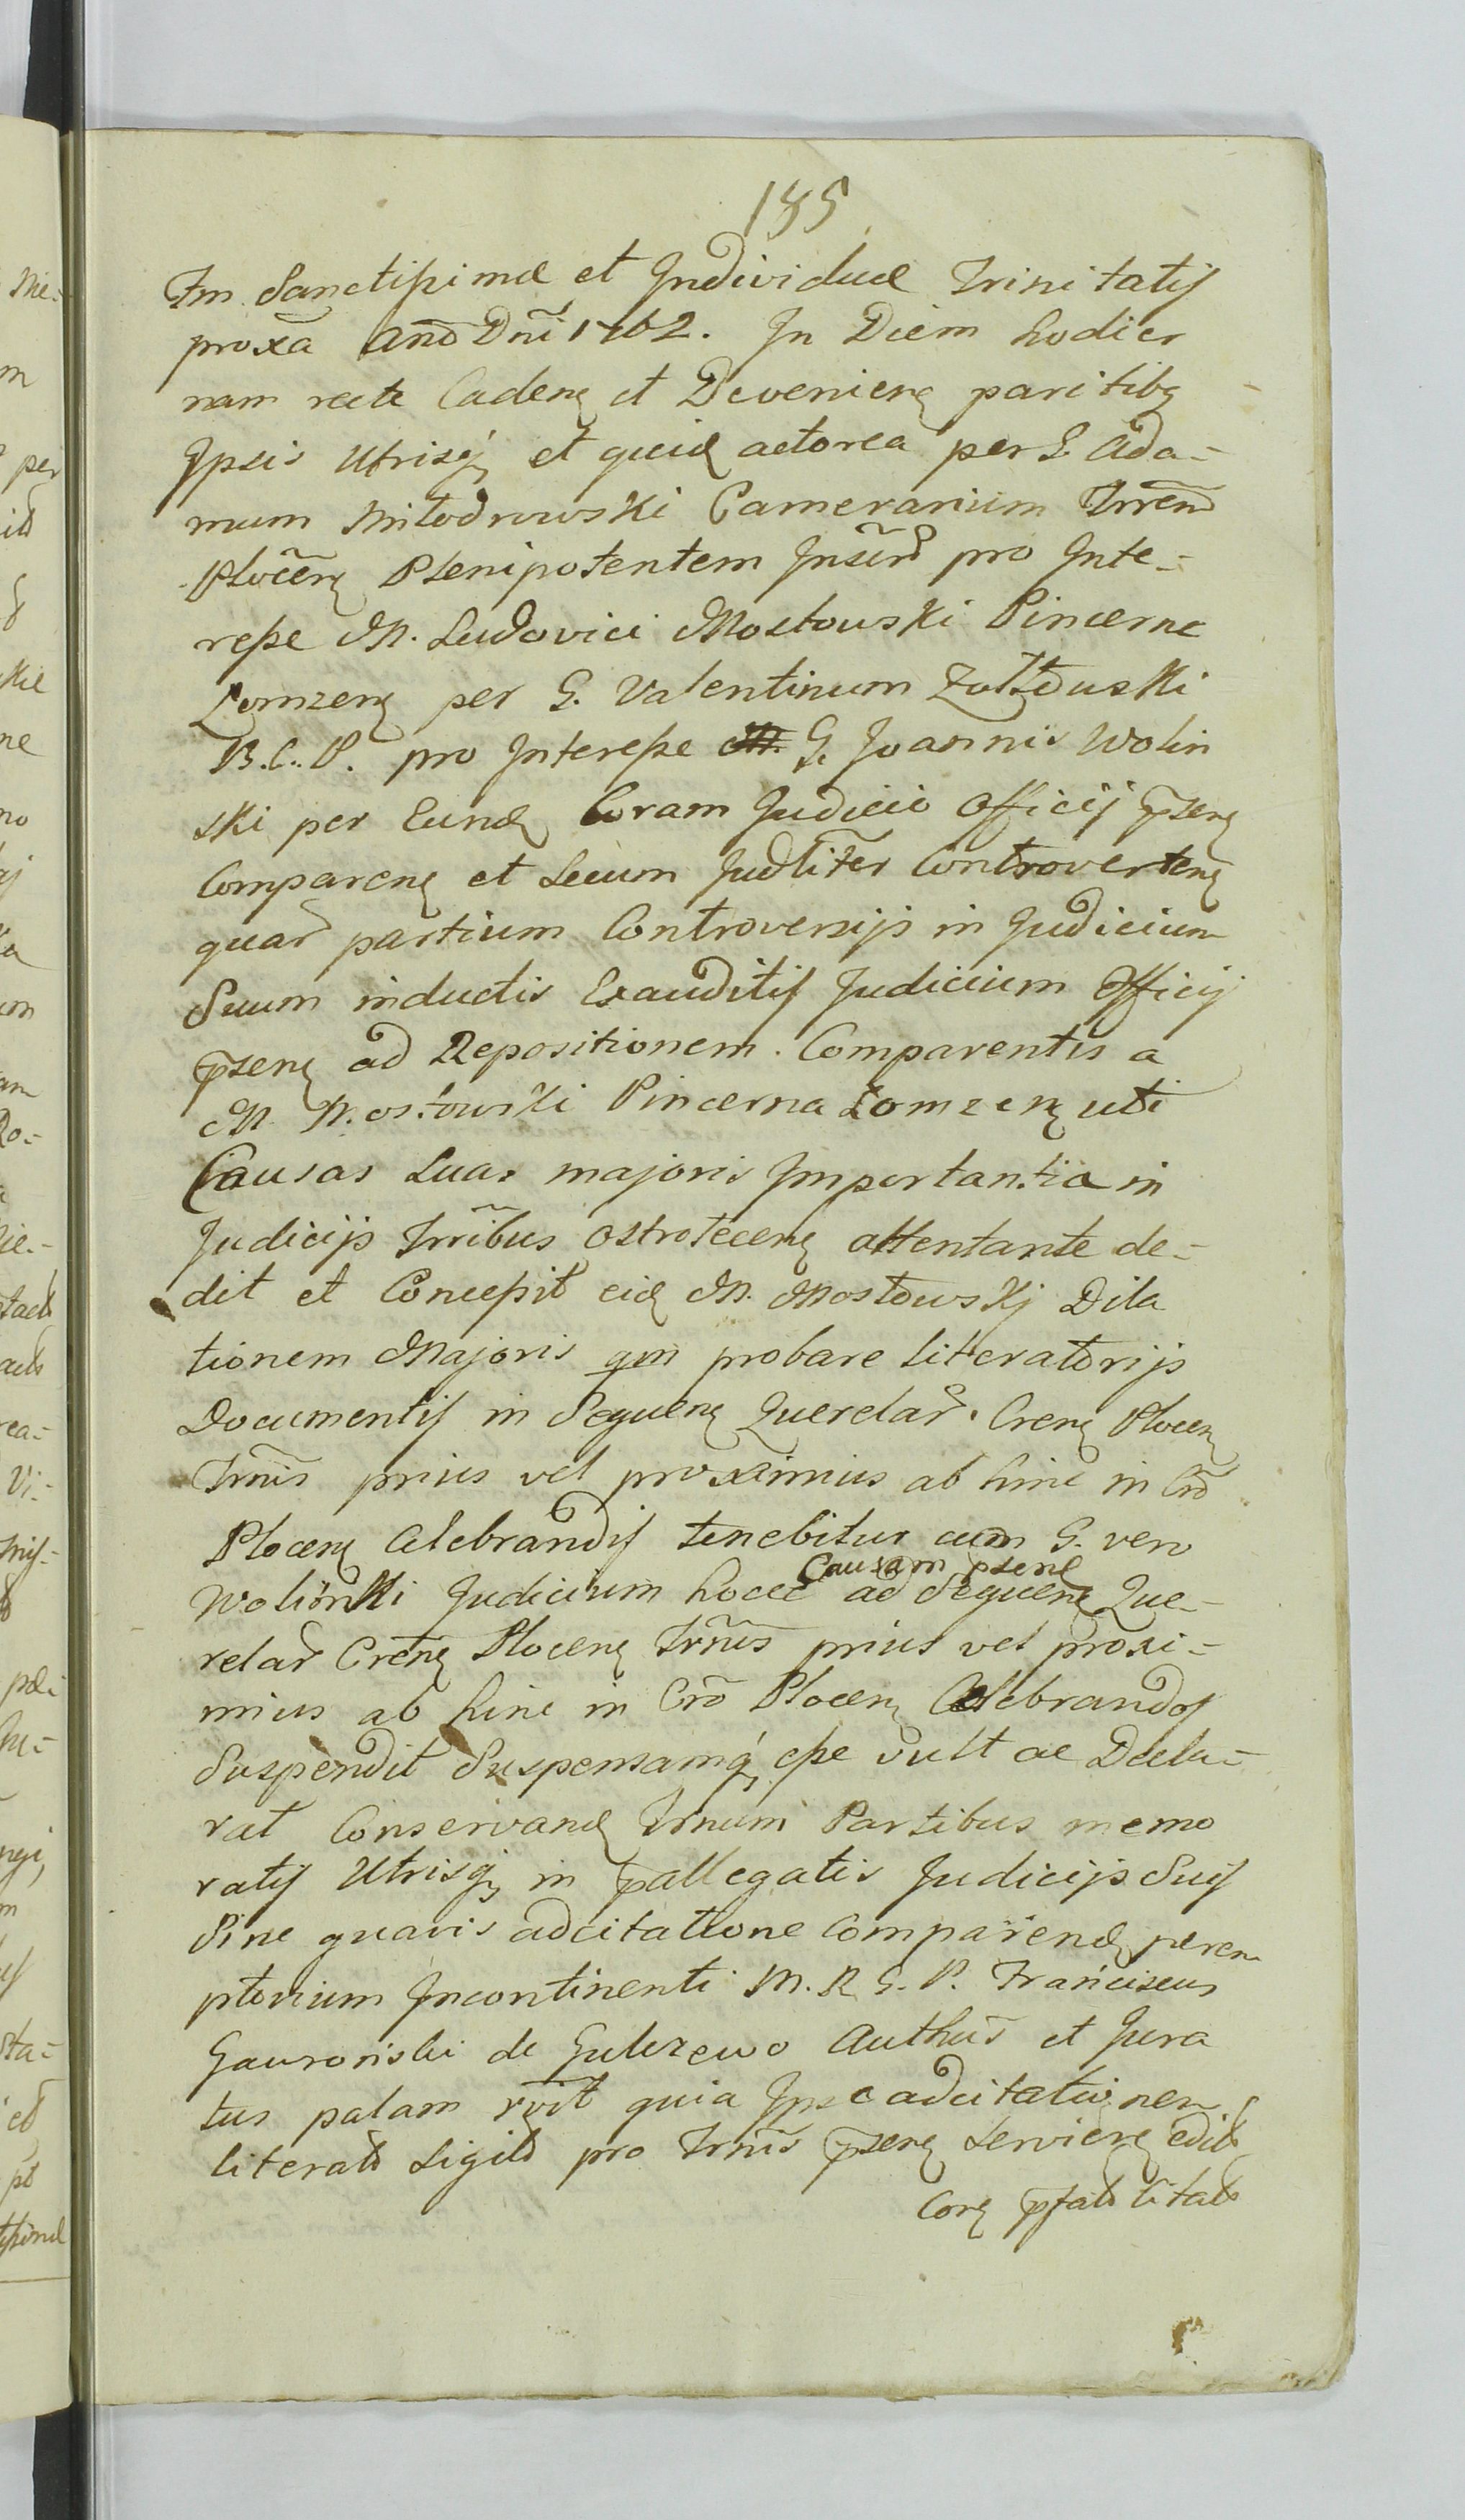 185
Fm. Sanctissimæ et Individuæ Trinitatis
proxã Anõ Dñi 1762. In Diem hodier
nam recte Caden et Devenien paritibq
Ipsis Utrisq, et quid actorea per G. Ada-
mum Miłodrowski Camerarium Trren
Plocen Plenipotentem Insert pro Inte-
resse M. Ludovici Mostowski Pincernæ
Łomzen per G. Valentinum
B. C. P. pro Interesse G. Joannis Wolin
ski per Eund Coram Judicio Officij pzen
Comparen et secum Judliter Controverten
quar partium Controversijs in Judicium
Suum inductis Exauditis Judicium Officij
pzen ad Repositionem. Comparentis a
M. Mostowski Pincerna Łomzen uti
Causas suas majoris Importantia in
Judicijs Trribus Ostrolecen attentante de-
dit et Concessit eid M. Mostowskj Dila
tionem Majoris qm probare literatorijs
Documentis in Sequen Querelar. Cren Plocen
Trmis prius vel proximius ab hinc in Crõ
Plocen Celebrandis tenebitur cum G. vero
Causam pzene
Wolinski Judicium hocce ad Sequen Que-
relar Cren Plocen Trmis prius vel proxi-
mius ab hinc in Crõ Plocen Celebrandos
Suspendit Suspensamq, esse vult ac Decla-
rat Conservand Trnum Partibus memo
ratis Utrisq, in pallegatis Judicijs Suis
Sine quavis adcitatione Comparend perem
ptorium Incontinenti M. R. G. P. Franciscus
Gawronski de Gulczewo Authus et Jura
tus palam rvit quia Ipse adcitationem
literald Sigild pro Trmis pzen servien edit
Corg pfald litald